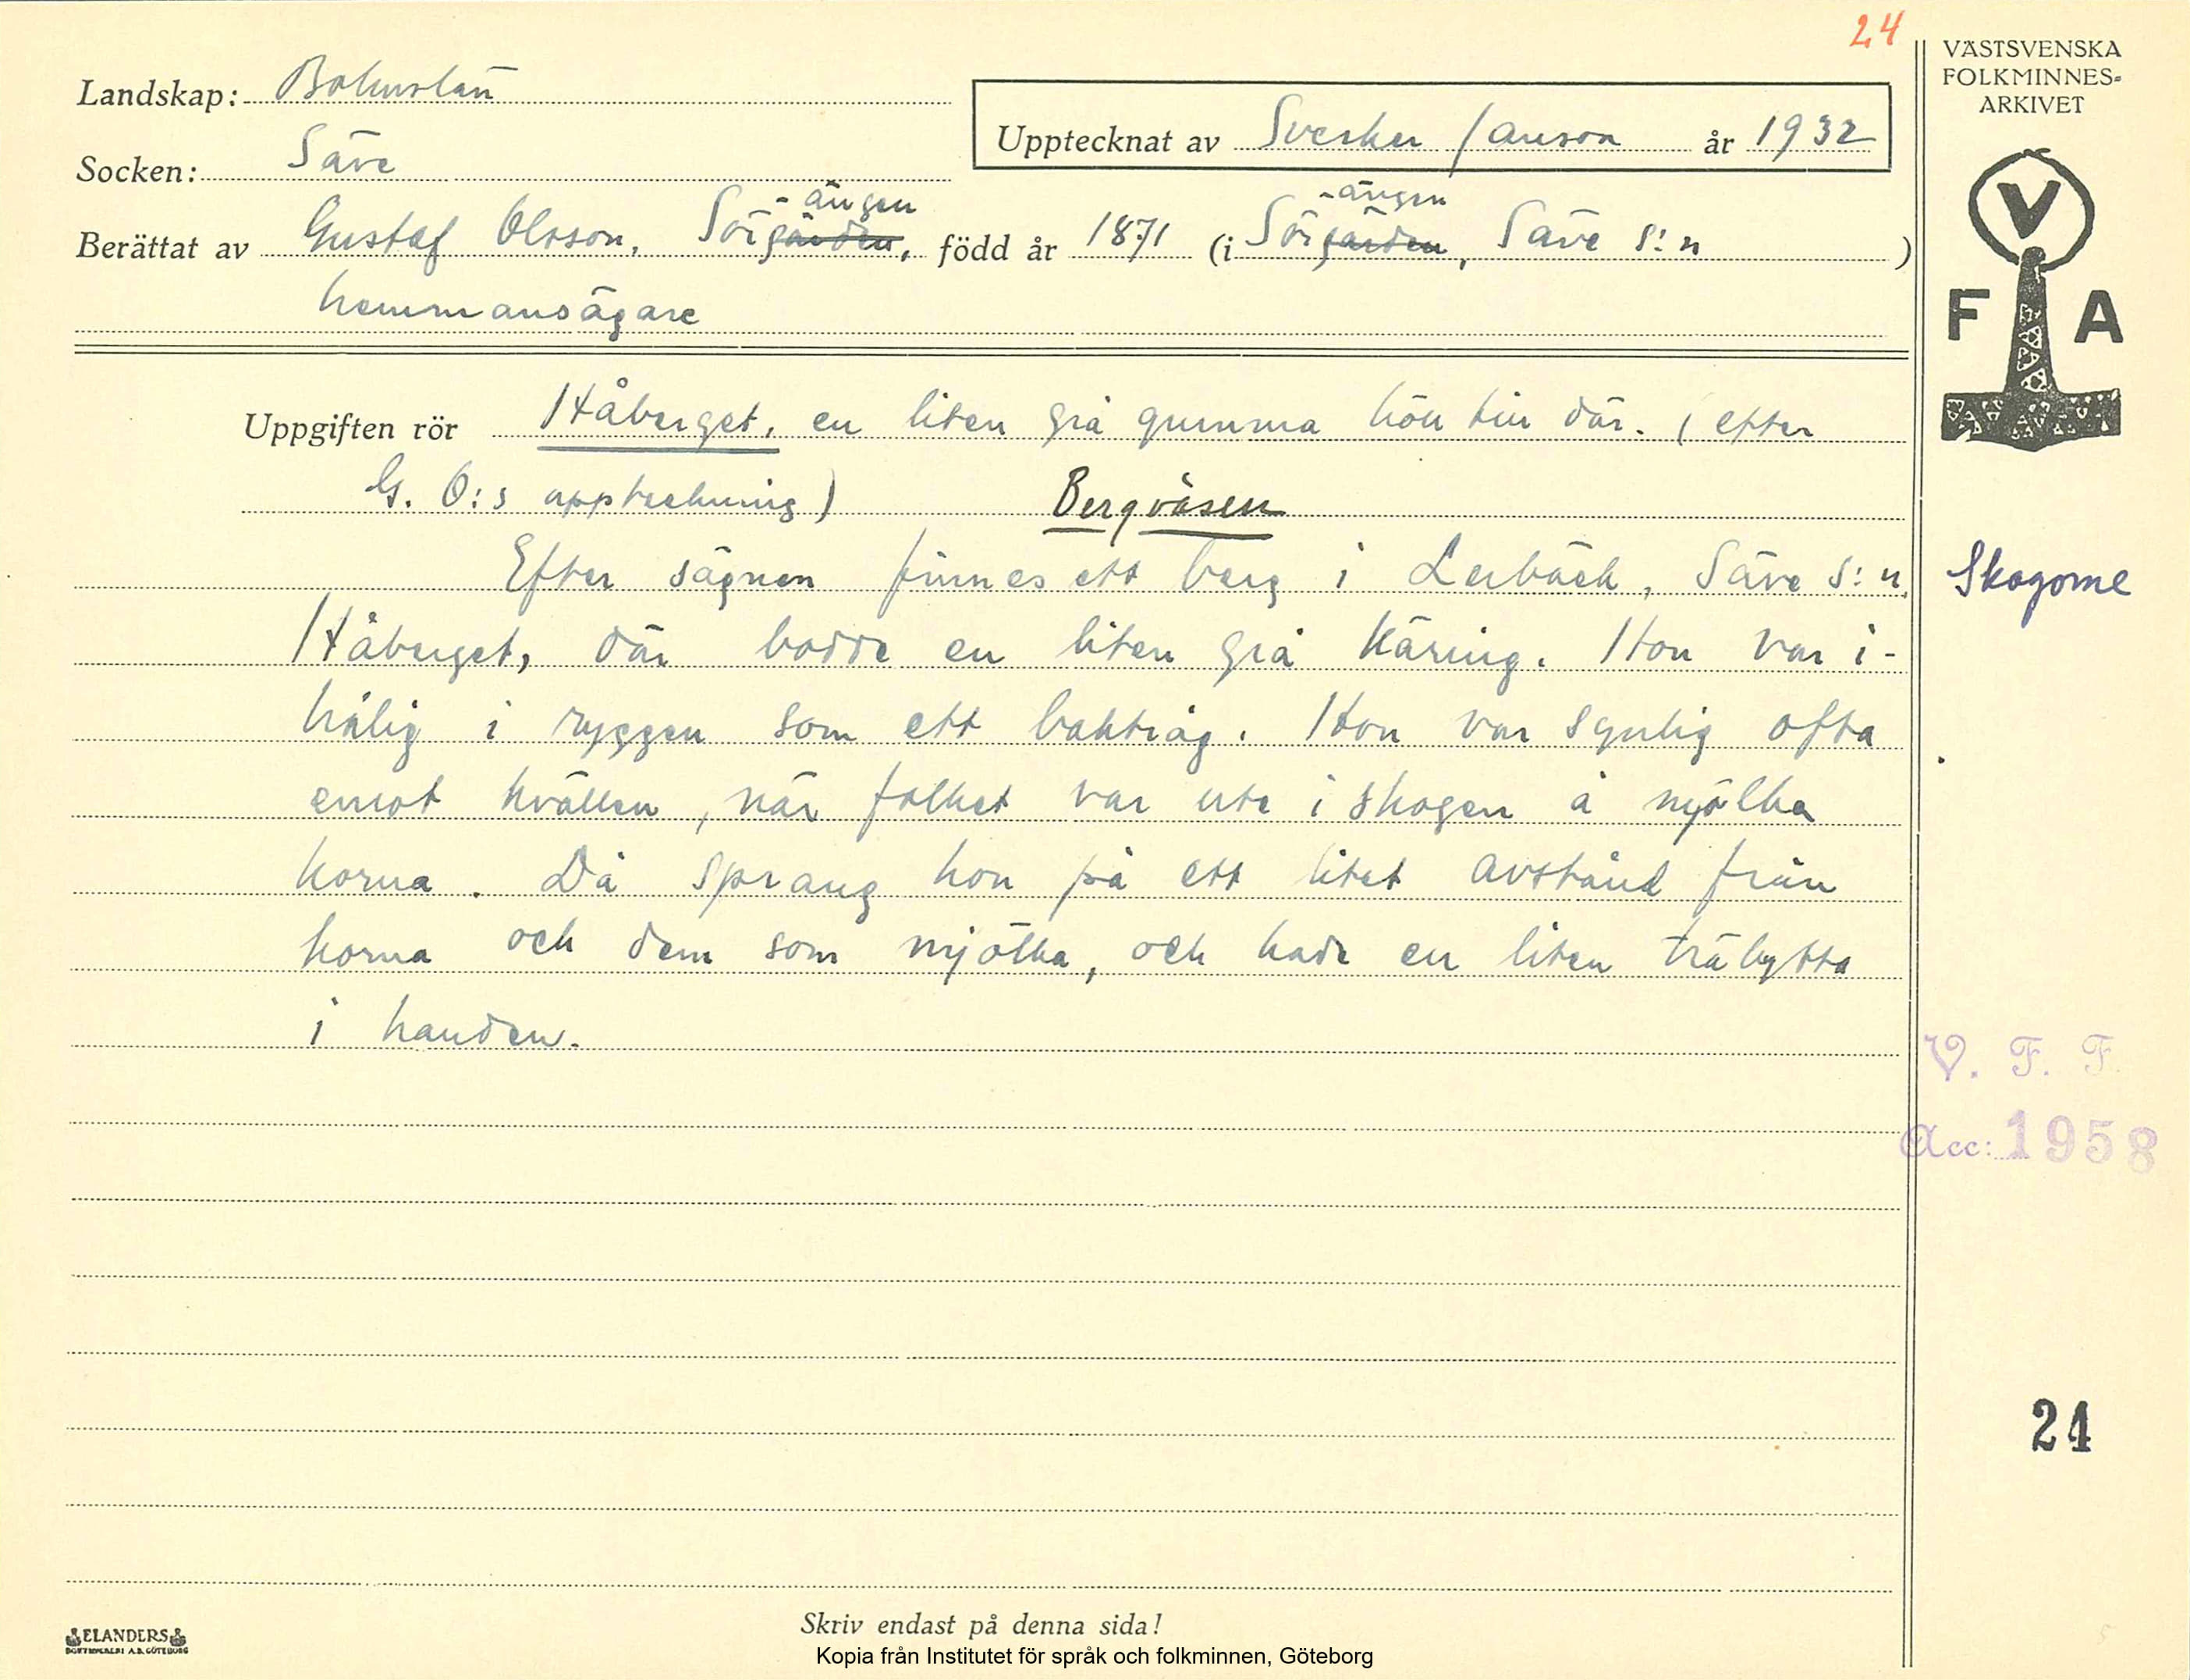 24
VÄSTSVENSKA
FOLKMINNES-
ARKIVET
Landskap: Bohuslän
Upptecknat av Sverker Janson år 1932
Socken: Säve
-ängen -ängen
Berättat av Gustaf Olsson, Sörgården, född år 1871 (i Sörgården, Säve s:n )
hemmansägare
V
F A
Uppgiften rör Håberget, en liten grå gumma höll till där. (efter
G. O:s uppteckning) Bergväsen
Efter sägnen finnes ett berg i Lerbäck, Säve s:n,
Skogome
Håberget, där bodde en liten grå käring. Hon var i-
hålig i ryggen som ett baktråg. Hon var synlig ofta
emot kvällen, när folket var ute i skogen å mjölka
korna. Då sprang hon på ett litet avstånd från
korna och dem som mjölka, och hade en liten träbytta
i handen.
V. F. F.
Acc: 1958
24
Skriv endast på denna sida!
ELANDERS
BOKTRYCKERI A.B. GÖTEBORG
Kopia från Institutet för språk och folkminnen, Göteborg